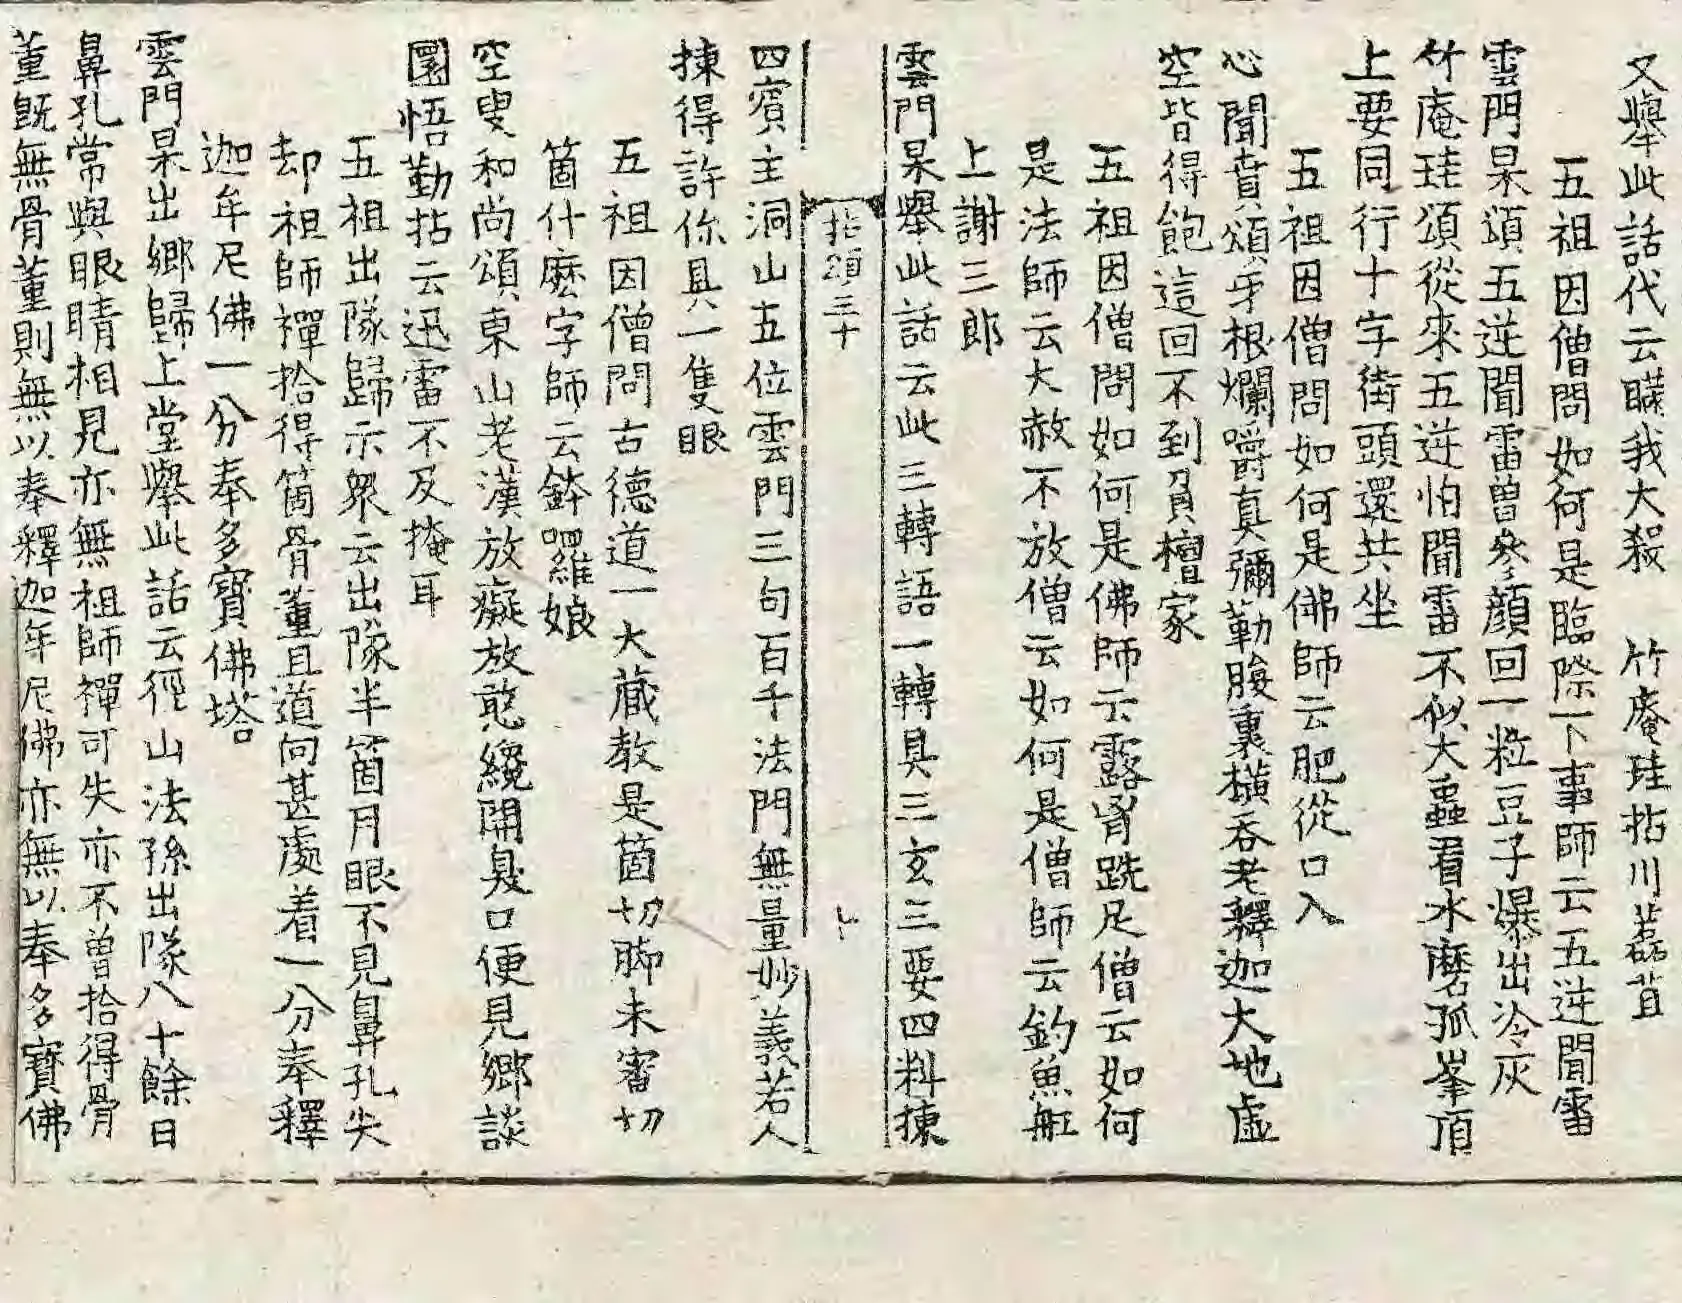 又舉此話代云賺我大殺　竹庵珪拈川藞苴
五祖因僧問如何是臨際下事師云五逆聞雷
雲門杲頌五逆聞雷曽參顔回一粒豆子爆出冷灰
竹庵珪頌從來五逆怕聞雷不似大蟲看水磨孤峯頂
上要同行十字街頭還共坐
五祖因僧問如何是佛師云肥從口入
心聞賁頌牙根爛嚼真彌勒腹裏橫吞老釋迦大地虛
空皆得飽這回不到負檀家
五祖因僧問如何是佛師云露胷跣足僧云如何
是法師云大赦不放僧云如何是僧師云釣魚舡
上謝三郎
雲門杲舉此話云此三轉語一轉具三玄三要四料揀
拈頌三十　七
四賓主洞山五位雲門三句百千法門無量妙義若人
揀得許你具一隻眼
五祖因僧問古德道一大藏教是箇切脚未審切
箇什麽字師云鉢囉娘
空叟和尚頌東山老漢放癡放憨纔開臭口便見鄉談
圜悟勤拈云迅雷不及掩耳
五祖出隊歸示衆云出隊半箇月眼不見鼻孔失
却祖師禪拾得箇骨董且道向甚處着一分奉釋
迦牟尼佛一分奉多寶佛塔
雲門杲出鄉歸上堂舉此話云徑山法孫出隊八十餘日
鼻孔常與眼睛相見亦無祖師禪可失亦不曽拾得骨
董旣無骨董則無以奉釋迦牟尼佛亦無以奉多寶佛